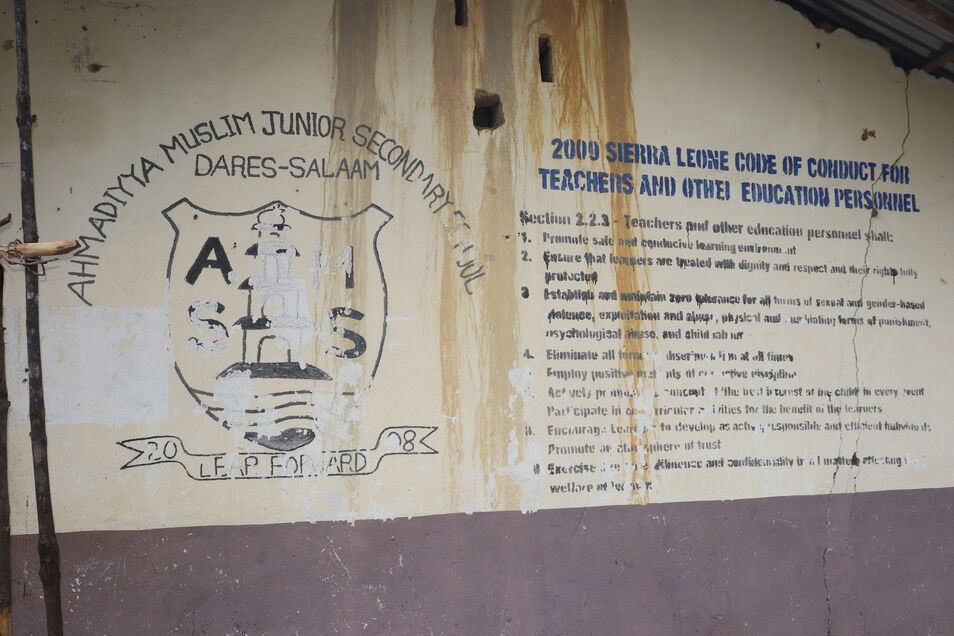 AHMADIYYA MUSLIM JUNIOR SECONDARY SCHOOL
DARES-SALAAM
A M
S S
20 08
LEAP FORWARD
2009 SIERRA LEONE CODE OF CONDUCT FOR
TEACHERS AND OTHER EDUCATION PERSONNEL
Section 2.2.3 - Teachers and other education personnel shall:
1. Promote safe and conducive learning environment
2. Ensure that learners are treated with dignity and respect and their rights fully
protected
3 Establish and maintain zero tolerance for all forms of sexual and gender-based
violence, exploitation and abuse, physical and humiliating forms of punishment,
psychological abuse, and child labour
4. Eliminate all forms of discrimination at all times
Employ positive methods of corrective discipline
Actively promote the concept of the best interest of the child in every event
Participate in co-curricular activities for the benefit of the learners
8. Encourage Learners to develop as active, responsible and efficient individuals
Promote an atmosphere of trust
Exercise and confidentiality in all matters affecting
welfare of learners